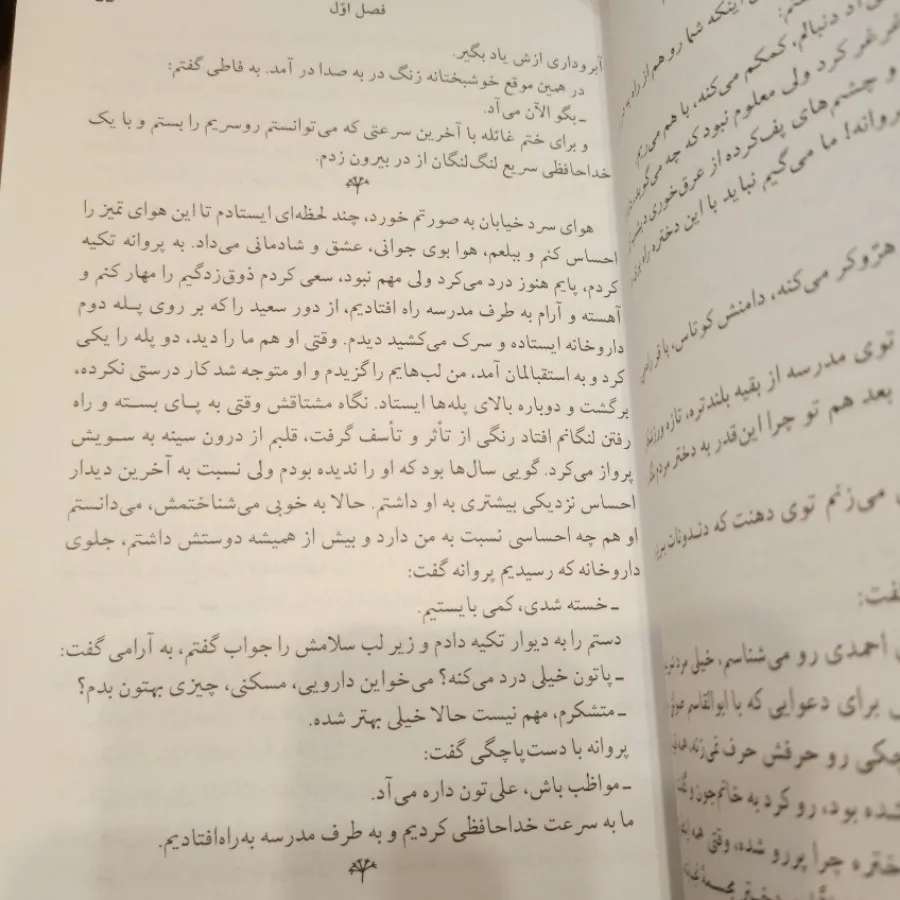 فصل اوّل
آبروداری ازش یاد بگیر.
در همین موقع خوشبختانه زنگ در به صدا در آمد. به فاطی گفتم:
ـ بگو الآن می‌آد.
و برای ختم غائله با آخرین سرعتی که می‌توانستم روسریم را بستم و با یک
خداحافظی سریع لنگ‌لنگان از در بیرون زدم.
هوای سرد خیابان به صورتم خورد، چند لحظه‌ای ایستادم تا این هوای تمیز را
احساس کنم و ببلعم، هوا بوی جوانی، عشق و شادمانی می‌داد. به پروانه تکیه
کردم، پایم هنوز درد می‌کرد ولی مهم نبود، سعی کردم ذوق‌زدگیم را مهار کنم و
آهسته و آرام به طرف مدرسه راه افتادیم، از دور سعید را که بر روی پله دوم
داروخانه ایستاده و سرک می‌کشید دیدم. وقتی او هم ما را دید، دو پله را یکی
کرد و به استقبالمان آمد، من لب‌هایم را گزیدم و او متوجه شد کار درستی نکرده،
برگشت و دوباره بالای پله‌ها ایستاد. نگاه مشتاقش وقتی به پای بسته و راه
رفتن لنگانم افتاد رنگی از تأثر و تأسف گرفت، قلبم از درون سینه به سویش
پرواز می‌کرد. گویی سال‌ها بود که او را ندیده بودم ولی نسبت به آخرین دیدار
احساس نزدیکی بیشتری به او داشتم. حالا به خوبی می‌شناختمش، می‌دانستم
او هم چه احساسی نسبت به من دارد و بیش از همیشه دوستش داشتم، جلوی
داروخانه که رسیدیم پروانه گفت:
ـ خسته شدی، کمی بایستیم.
دستم را به دیوار تکیه دادم و زیر لب سلامش را جواب گفتم، به آرامی گفت:
ـ پاتون خیلی درد می‌کنه؟ می‌خواین دارویی، مسکنی، چیزی بهتون بدم؟
ـ متشکرم، مهم نیست حالا خیلی بهتر شده.
پروانه با دست‌پاچگی گفت:
ـ مواظب باش، علی‌تون داره می‌آد.
ما به سرعت خداحافظی کردیم و به طرف مدرسه به‌راه‌افتادیم.
اینکه شما رو هم از راه به در
آد دنبالم، کمکم می‌کنه، با هم می‌ریم.
غرغر کرد ولی معلوم نبود که چه می‌گوید
و چشم‌های پف‌کرده از عرق‌خوری
پروانه! ما می‌گیم نباید با این دختره راه بری
هرّوکر می‌کنه، دامنش کوتاس، با
توی مدرسه از بقیه بلندتره، تازه
بعد هم تو چرا این‌قدر به دختر مردم
می‌زنم توی دهنت که دندونات بریزه
گفت:
احمدی رو می‌شناسم، خیلی
برای دعوایی که با ابوالقاسم
رو حرفش حرف نمی‌زنه
شده بود، رو کرد به خانم‌جون و گفت
دختره چرا پررو شده، وقتی همه